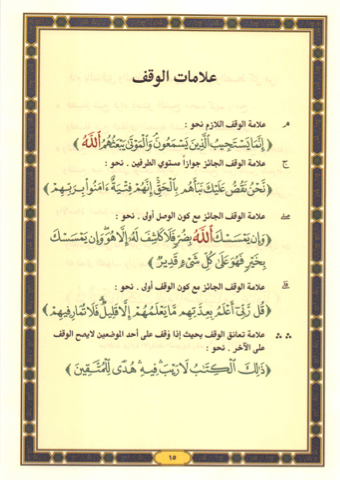 علامات الوقف
مـ علامة الوقف اللازم نحو :
﴿ إِنَّمَا يَسْتَجِيبُ الَّذِينَ يَسْمَعُونَ ۘ وَالْمَوْتَىٰ يَبْعَثُهُمُ اللَّهُ ﴾
ج علامة الوقف الجائز جوازاً مستوي الطرفين . نحو :
﴿ نَحْنُ نَقُصُّ عَلَيْكَ نَبَأَهُم بِالْحَقِّ ۚ إِنَّهُمْ فِتْيَةٌ ءَامَنُوا بِرَبِّهِمْ ﴾
صلے علامة الوقف الجائز مع كون الوصل أولى . نحو :
﴿ وَإِن يَمْسَسْكَ اللَّهُ بِضُرٍّ فَلَا كَاشِفَ لَهُ إِلَّا هُوَ ۖ وَإِن يَمْسَسْكَ
بِخَيْرٍ فَهُوَ عَلَىٰ كُلِّ شَيْءٍ قَدِيرٌ ﴾
قلے علامة الوقف الجائز مع كون الوقف أولى . نحو :
﴿ قُل رَّبِّي أَعْلَمُ بِعِدَّتِهِم مَّا يَعْلَمُهُمْ إِلَّا قَلِيلٌ ۗ فَلَا تُمَارِ فِيهِمْ ﴾
∴ ∴ علامة تعانق الوقف بحيث إذا وُقف على أحد الموضعين لايصح الوقف
على الآخر . نحو :
﴿ ذَٰلِكَ الْكِتَٰبُ لَا رَيْبَ ۛ فِيهِ ۛ هُدًى لِّلْمُتَّقِينَ ﴾
١٥